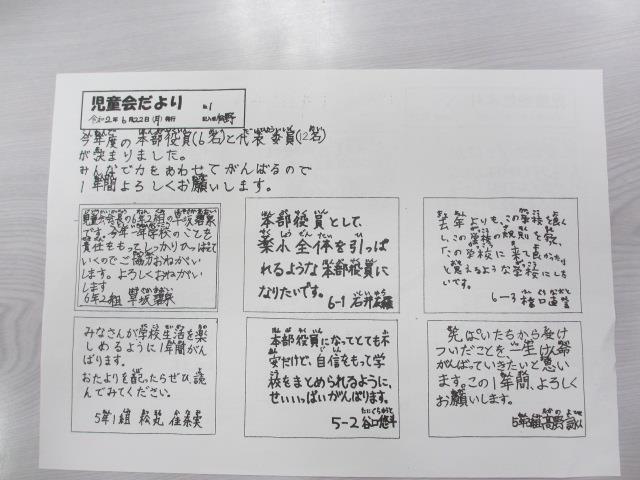 児童会だより No.1
令和2年6月22日(月)発行
今年度の本部役員(6名)と代表委員(12名)
が決まりました。
みんなで力をあわせてがんばるので
1年間よろしくお願いします。
児童会会長の6年2組の
です。今年一年学校のことを
責任をもってしっかりひっぱって
いくのでご協力おねがい
します。よろしくおねがい
します
6年2組
本部役員として、
楽小全体を引っぱ
れるような本部役員に
なりたいです。
6-1 石井
去年よりも、この学校を良く
し、この学校の規則を
、この学校に来て良かったな
と思えるような学校にした
いです。
6-3
みなさんが学校生活を楽
しめるように1年間がん
ばります。
おたよりを配ったらぜひ、読
んでみてください。
5年1組 松丸
本部役員になってとても不
安だけど、自信をもって学
校をまとめられるように、
せいいっぱいがんばります。
5-2 谷口悠斗
先ぱいたちから受け
ついだことを一生けん命
がんばっていきたいと思い
ます。この1年間、よろしく
お願いします。
5年3組 高野